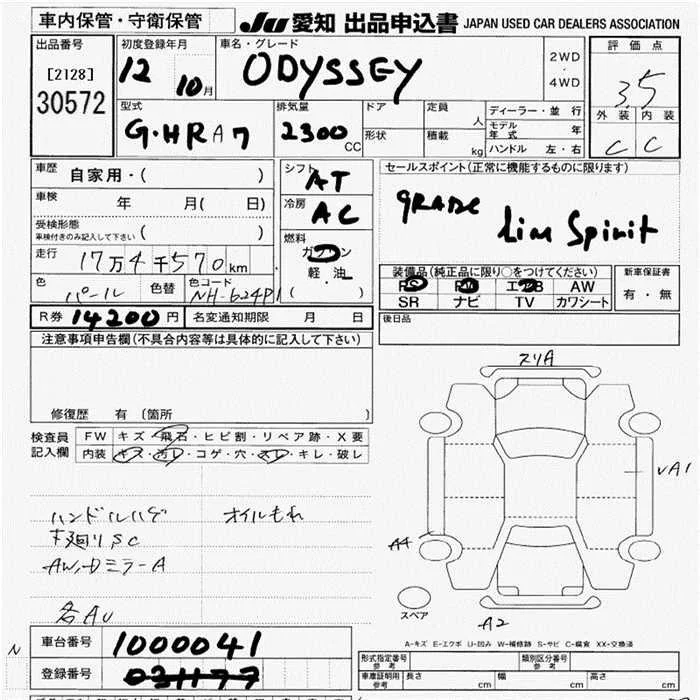 車内保管・守衛保管
JU 愛知 出品申込書 JAPAN USED CAR DEALERS ASSOCIATION
出品番号
[2128]
30572
初度登録年月
12 10月
車名・グレード
ODYSSEY
2WD
・
4WD
評価点
3.5
外装 内装
C C
型式
G・HRA7
排気量
2300 CC
ドア
形状
定員 人
積載 kg
ディーラー・並行
モデル年式 年
ハンドル 左・右
車歴
自家用・( )
車検 年 月( 日)
受検形態
車検付きのみ記入して下さい ( )
走行
17万4千570km
色
パール
色替
色コード
NH-624P1
シフト
AT
冷房
AC
燃料
ガソリン
軽油
( )
セールスポイント(正常に機能するものに限ります)
GRADE
Lim Spirit
装備品(純正品に限り○をつけてください)
PS PW エアB AW
SR ナビ TV カワシート
新車保証書
有・無
R券 14200円 名変通知期限 月 日
後日品
注意事項申告欄(不具合内容等は具体的に記入して下さい)
修復歴 有 〔箇所 〕
検査員
記入欄
FW キズ・飛石・ヒビ割・リペア跡・X要
内装 キズ・汚レ・コゲ・穴・スレ・キレ・破レ
ハンドルハゲ オイルもれ
下廻りSC
AW,DミラーA
各AU
スリA
UA1
A4
スペア
A2
A-キズ E-エクボ U-凹み W-補修跡 S-サビ C-腐食 XX-交換済
N
車台番号 1000041
登録番号
形式指定番号
参考
類別区分番号
参考
車庫証明用
参考
長さ cm 幅 cm 高さ cm